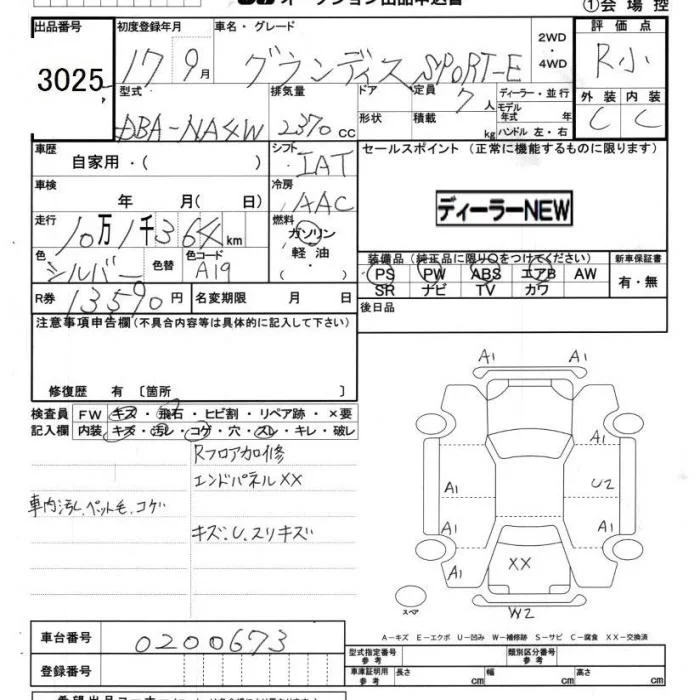 オークション出品申込書
①会場控
出品番号
3025
初度登録年月
17 9月
車名・グレード
グランディス SPORT-E
2WD
・
4WD
評価点
R小
型式
DBA-NA4W
排気量
2370 CC
ドア
形状
定員
7人
積載
kg
ディーラー・並行
モデル年式 年
ハンドル 左・右
外装
C
内装
C
車歴
自家用・( )
シフト
IAT
セールスポイント (正常に機能するものに限ります)
ディーラーNEW
車検
年 月( 日)
冷房
AAC
走行
10万1千364km
燃料
ガソリン
軽油
・( )
色
シルバー
色替
色コード
A19
装備品 (純正品に限り○をつけてください)
PS PW ABS エアB AW
SR ナビ TV カワ
新車保証書
有・無
R券
13590円
名変期限 月 日
後日品
注意事項申告欄(不具合内容等は具体的に記入して下さい)
修復歴 有 〔箇所 〕
検査員記入欄
FW キズ・飛石・ヒビ割・リペア跡・×要
内装 キズ・汚レ・コゲ・穴・スレ・キレ・破レ
Rフロアカロ修
エンドパネルXX
車内汚レ、ペット毛、コゲ
キズ、U、スリキズ
A1
A1
A1
A1
U2
A1
A1
A1
XX
W2
スペア
A-キズ E-エクボ U-凹み W-補修跡 S-サビ C-腐食 XX-交換済
車台番号
0200673
登録番号
型式指定番号
参考
類別区分番号
参考
車庫証明用
参考
長さ cm
幅 cm
高さ cm